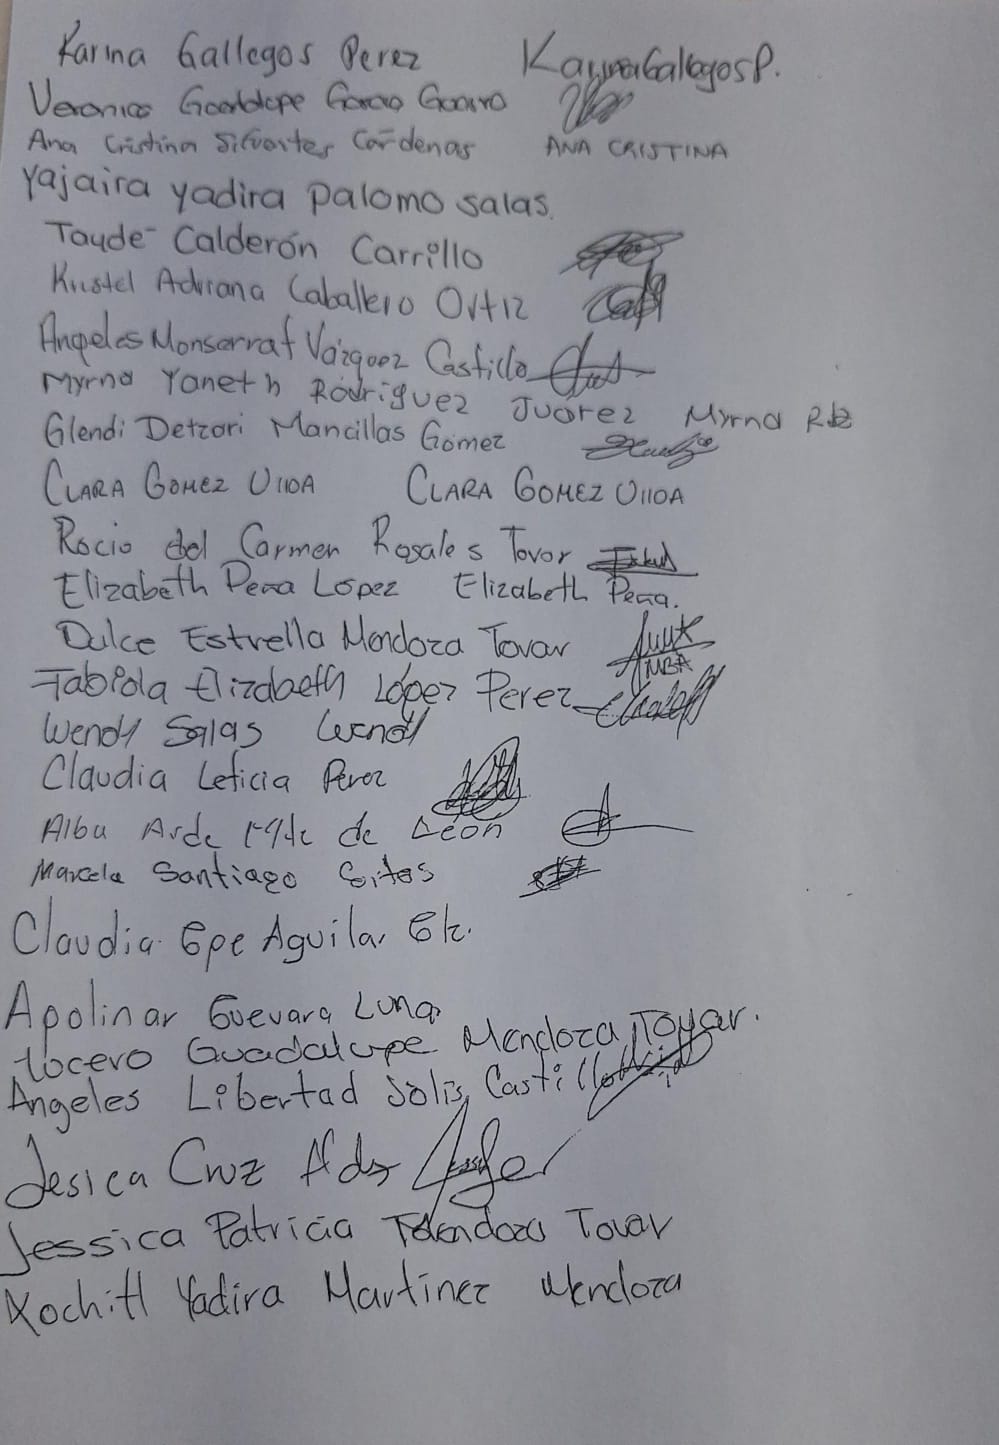 Karina Gallegos Perez KarinaGallegosP.
Veronica Guadalupe
Ana Cristina Sifuentes Cardenas ANA CRISTINA
Yajaira yadira palomo salas.
Tayde Calderón Carrillo
Kristel Adriana Caballero Ortiz
Angeles Monserrat Vázquez Castillo
Myrna Yaneth Rodriguez Juárez Myrna Rdz
Glendi Detzari Mancillas Gomez
CLARA GOMEZ UllOA CLARA GOMEZ UllOA
Rocio del Carmen Rosales Tovar
Elizabeth Pena López Elizabeth Pena.
Dulce Estrella Mendoza Tovar
Fabiola Elizabeth López Perez
Wendy Salas Wendy
Claudia Leticia Perez
Alba de León
Marcela Santiago
Claudia Gpe Aguilar
Apolinar Guevara Luna
Guadalupe Mendoza Tovar.
Angeles Libertad Solis Castillo
Jesica Cruz
Jessica Patricia Mendoza Tovar
Xochitl Yadira Martinez Mendoza